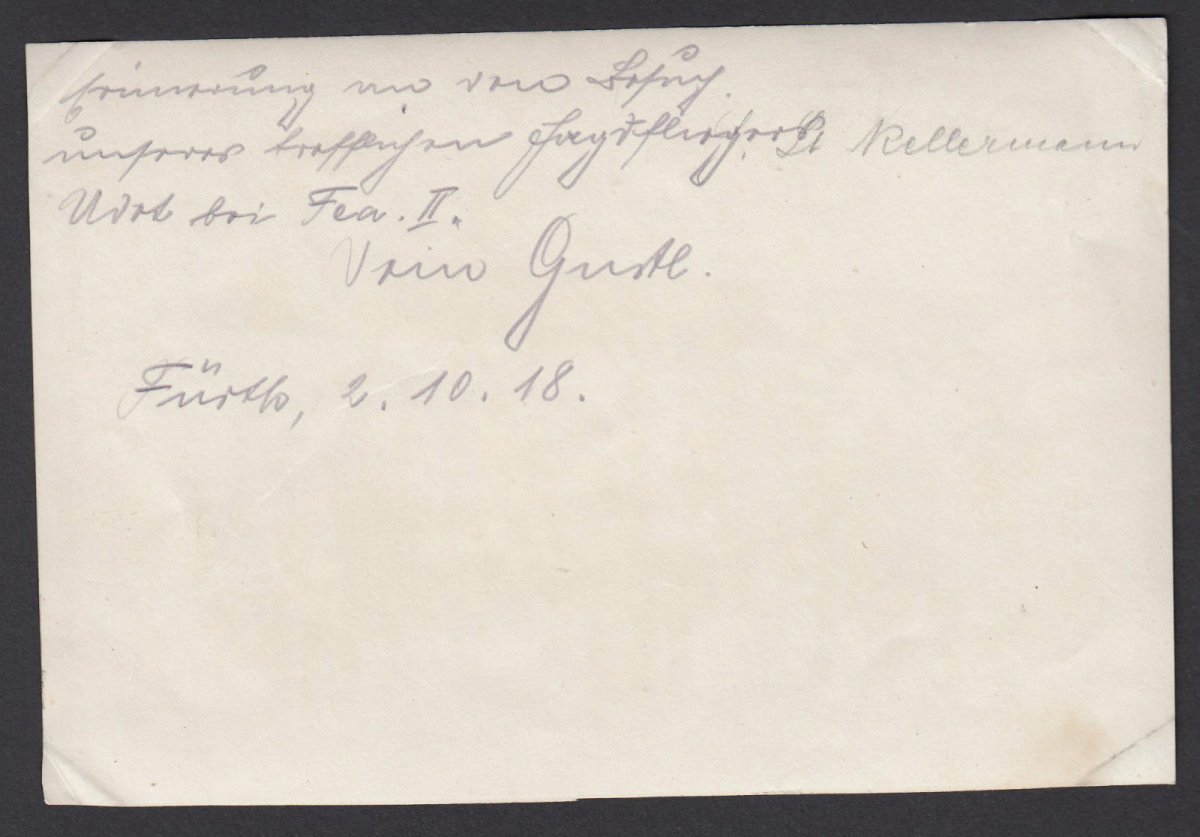 Erinnerung an den Besuch
unseres trefflichen Jagdfliegers Lt Kellermann
Udet bei Fea. II.
Dein Gustl.
Fürth, 2. 10. 18.